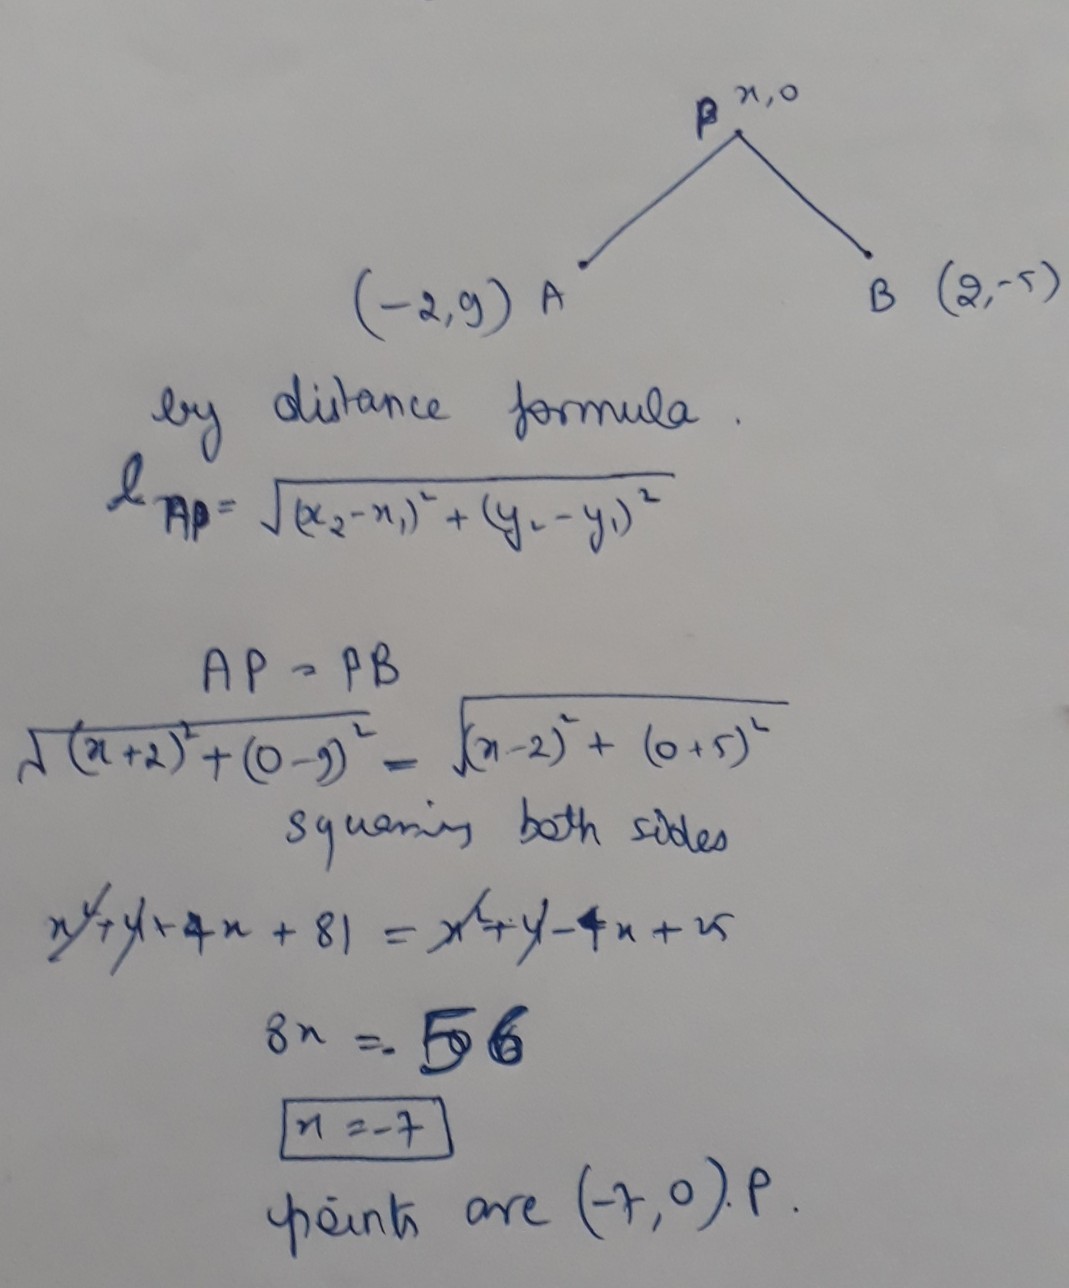 P x,0
(-2,9) A
B (2,-5)
by distance formula.
l AP = √(x₂-x₁)² + (y₂-y₁)²
AP = PB
√(x+2)² + (0-9)² = √(x-2)² + (0+5)²
squaring both sides
x²+4+4x + 81 = x²+4-4x + 25
8x =-56
x =-7
points are (-7,0).P.